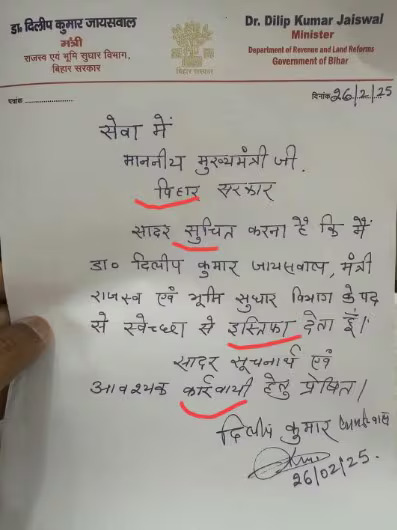 डा॰ दिलीप कुमार जायसवाल
मंत्री
राजस्व एवं भूमि सुधार विभाग,
बिहार सरकार
Dr. Dilip Kumar Jaiswal
Minister
Department of Revenue and Land Reforms
Government of Bihar
बिहार सरकार
पत्रांक
दिनांक 26/2/25
सेवा में
माननीय मुख्यमंत्री जी.
विहार सरकार
सादर सुचित करना है कि मैं
डा० दिलीप कुमार जायसवाल, मंत्री
राजस्व एवं भूमि सुधार विभाग के पद
से स्वेच्छा से इस्तिफा देता हूँ।
सादर सूचनार्थ एवं
आवश्यक कार्रवायी हेतु प्रेषित।
दिलीप कुमार
26/02/25.